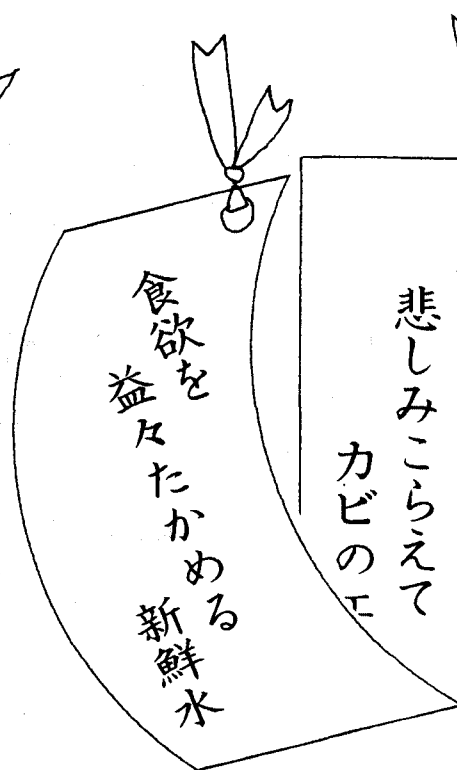 悲しみこらえて
カビの
食欲を
益々たかめる
新鮮水